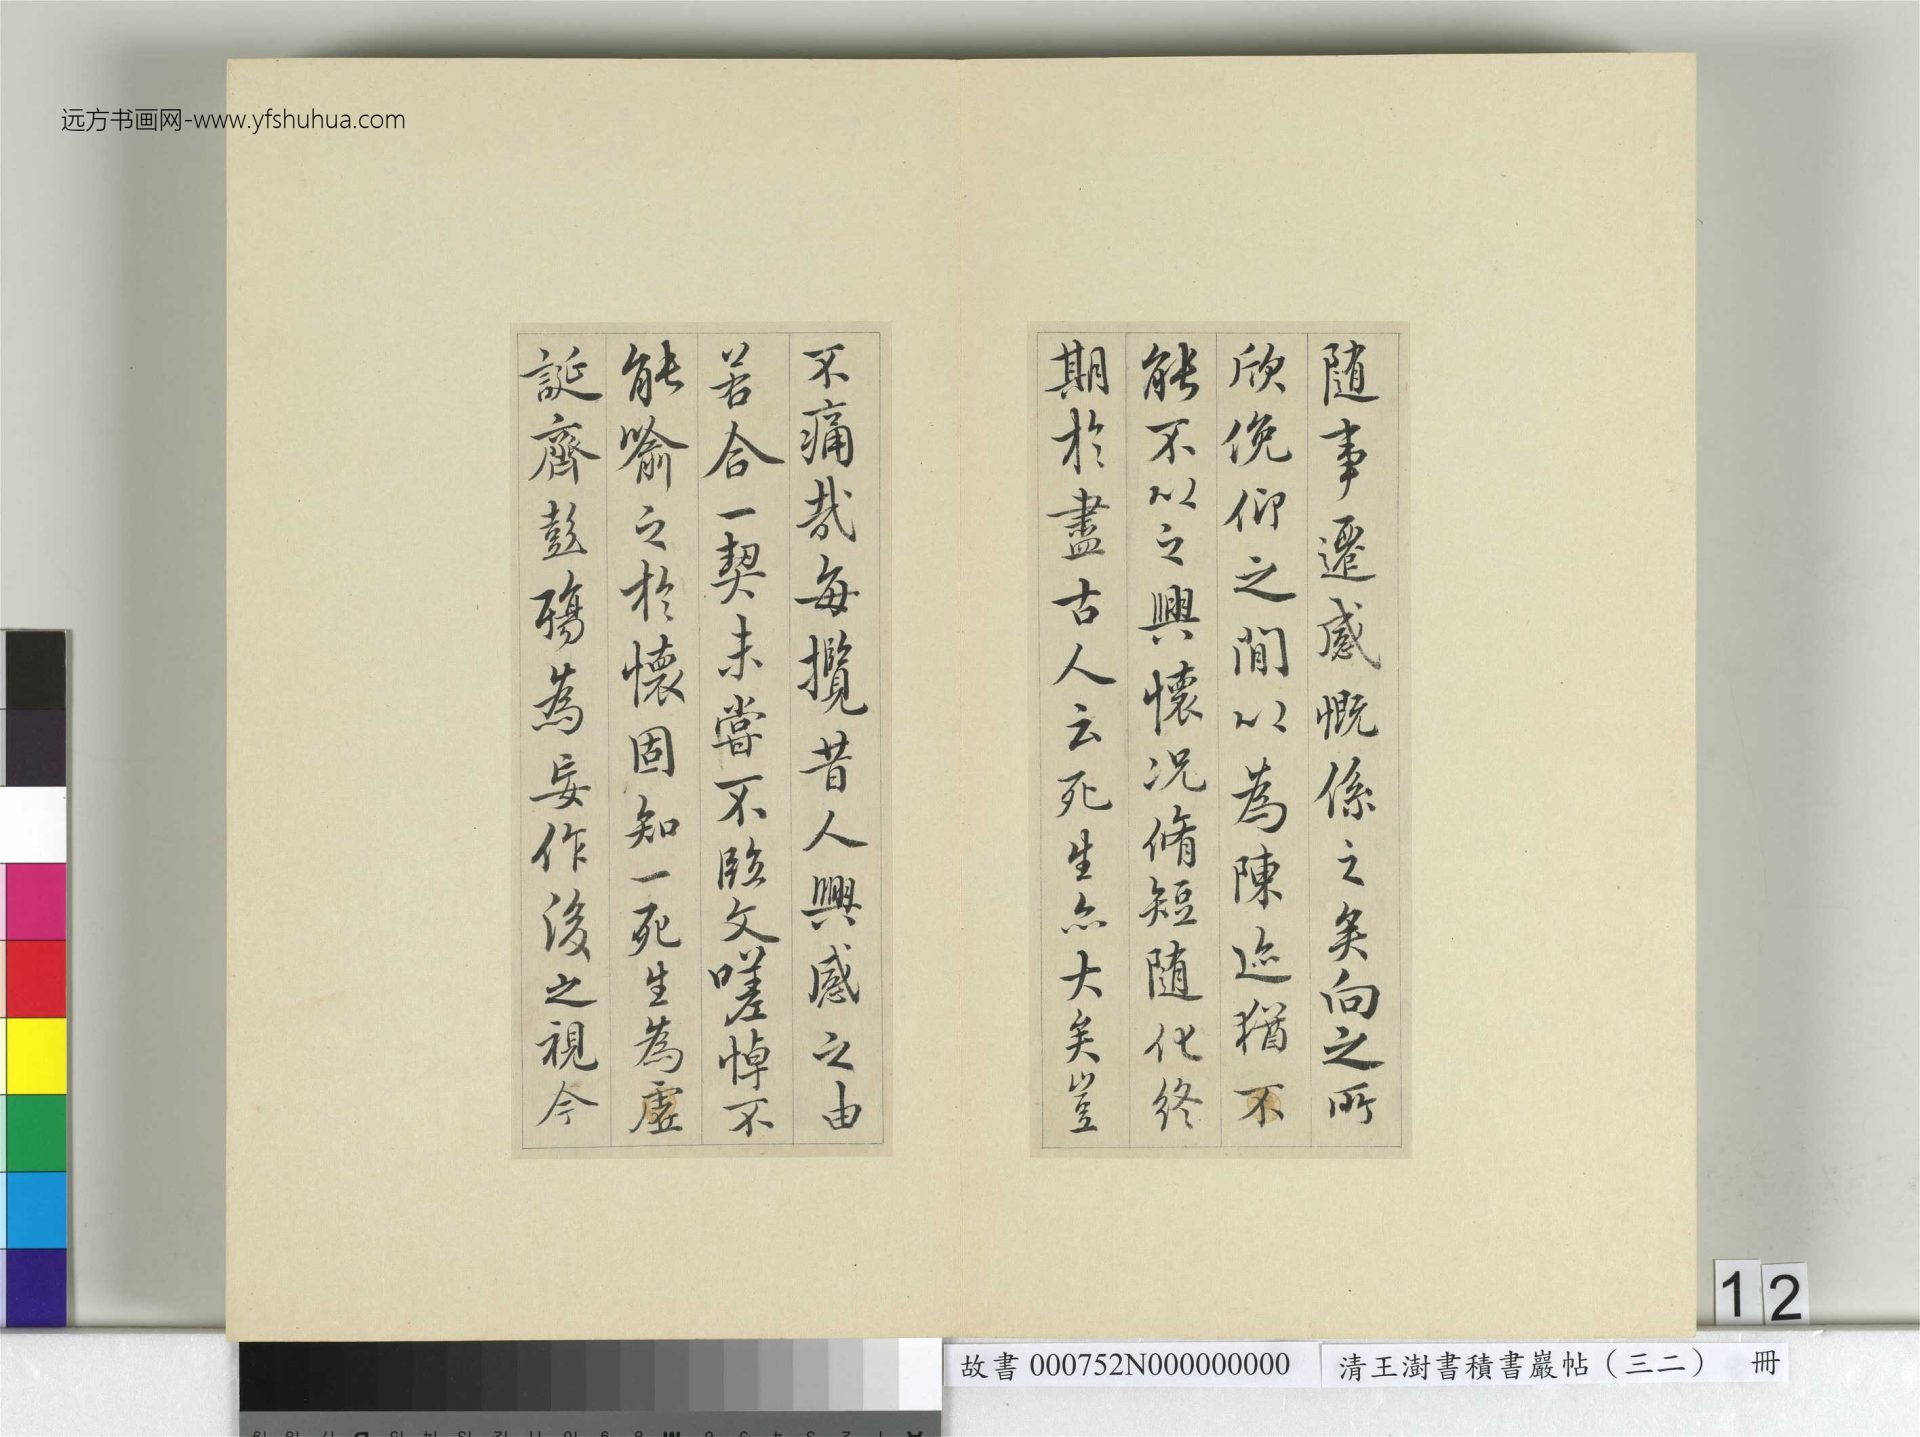 远方书画网-www.yfshuhua.com
随事遷感慨係之矣向之所
欣俛仰之間以為陳迹猶不
能不以之興懷况脩短随化終
期於盡古人云死生亦大矣豈
不痛哉每攬昔人興感之由
若合一契未嘗不臨文嗟悼不
能喻之於懷固知一死生為虛
誕齊彭殤為妄作後之視今
12
故書 000752N000000000
清王澍書積書巖帖（三二） 冊